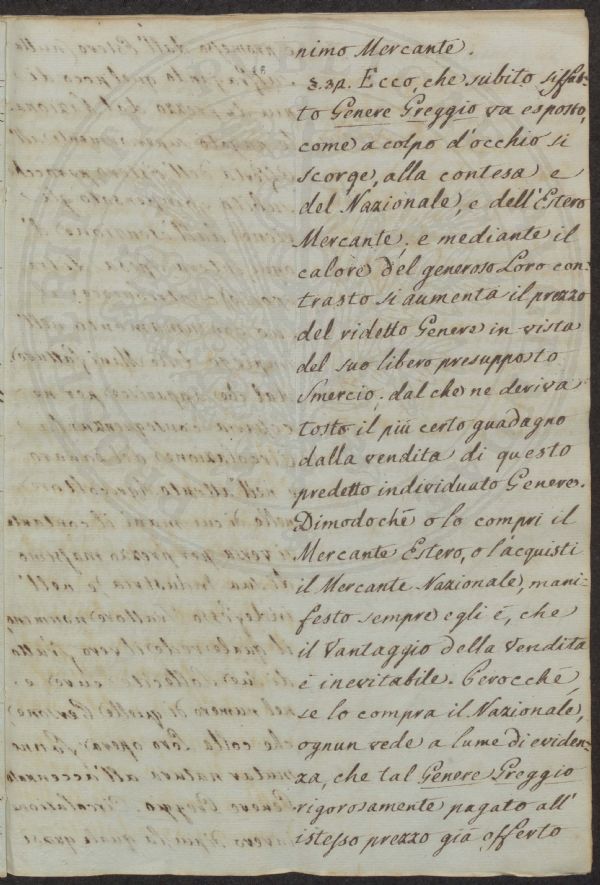 nimo Mercante.
§. 32. Ecco, che subito siffat-
to Genere Greggio va esposto,
come a colpo d'occhio si
scorge, alla contesa e
del Nazionale, e dell'Estero
Mercante; e mediante il
calore del generoso Loro con-
trasto si aumenta il prezzo
del ridetto Genere in vista
del suo libero presupposto
Smercio; dal che ne deriva
tosto il più certo guadagno
dalla vendita di questo
predetto individuato Genere.
Dimodoché o lo compri il
Mercante Estero, o l'acquisti
il Mercante Nazionale, mani-
festo sempre egli é, che
il Vantaggio della Vendita
é inevitabile. Perocché,
se lo compra il Nazionale,
ognun vede a lume di eviden-
za, che tal Genere Greggio
rigorosamente pagato all'
istesso prezzo giá offerto